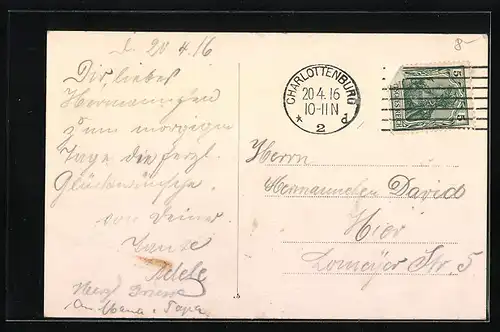 d. 20.4.16
Dir, liebes
Hermannchen
zum morgigen
Tage die herzl.
Glückwünsche.
von Deiner
Tante
Adele
Herzl Grüsse
an Mama u. Papa.
CHARLOTTENBURG
20.4.16
10-11N
* 2 d
5
5
8-
Herrn
Hermannchen David
Hier
Lomeyer Str. 5